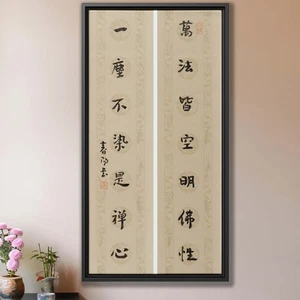 萬法皆空明佛性
一塵不染是禪心